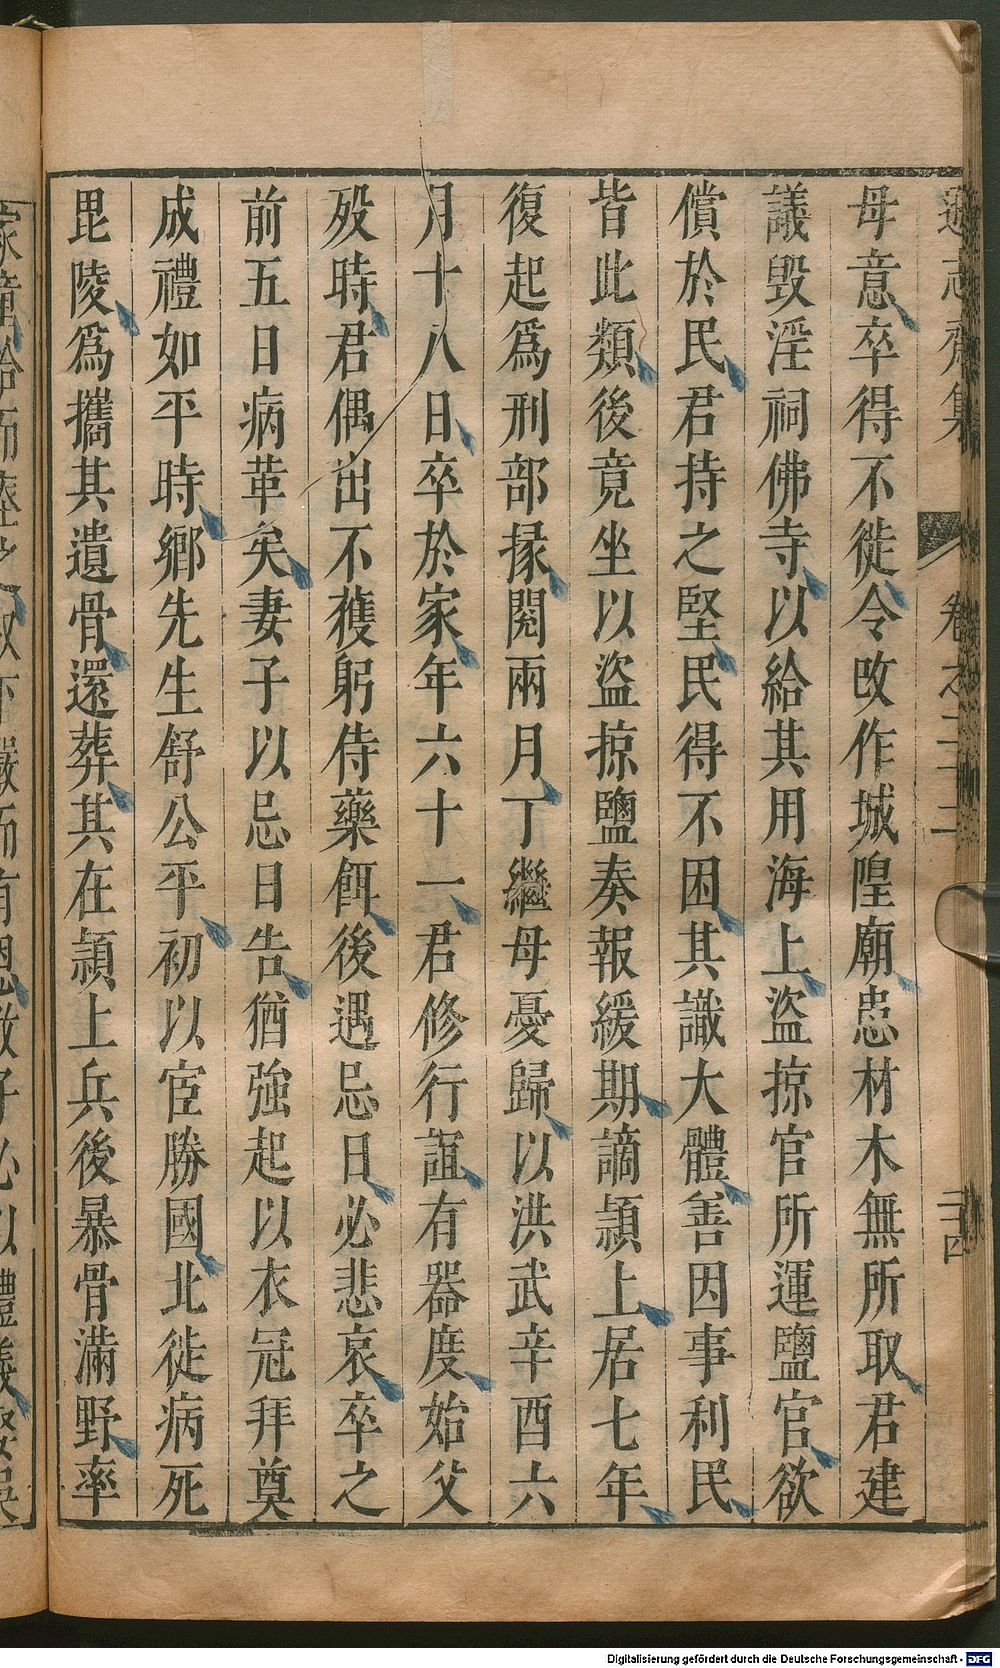 遜志齋集 卷之二十二 三十四
母意卒得不徙令改作城隍廟患材木無所取君建
議毀淫祠佛寺以給其用海上盜掠官所運鹽官欲
償於民君持之堅民得不困其識大體善因事利民
皆此類後竟坐以盜掠鹽奏報緩期謫潁上居七年
復起爲刑部掾閱兩月丁繼母憂歸以洪武辛酉六
月十八日卒於家年六十一君修行誼有器度始父
歿時君偶出不獲躬侍藥餌後遇忌日必悲哀卒之
前五日病革矣妻子以忌日告猶強起以衣冠拜奠
成禮如平時鄉先生舒公平初以宦勝國北徙病死
毘陵爲攜其遺骨還葬其在潁上兵後暴骨滿野率
Digitalisierung gefördert durch die Deutsche Forschungsgemeinschaft - DFG